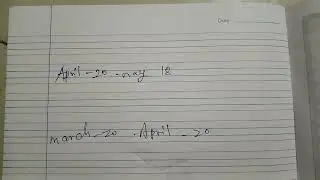 Day
April - 20 - may 18
march - 20 - April - 20